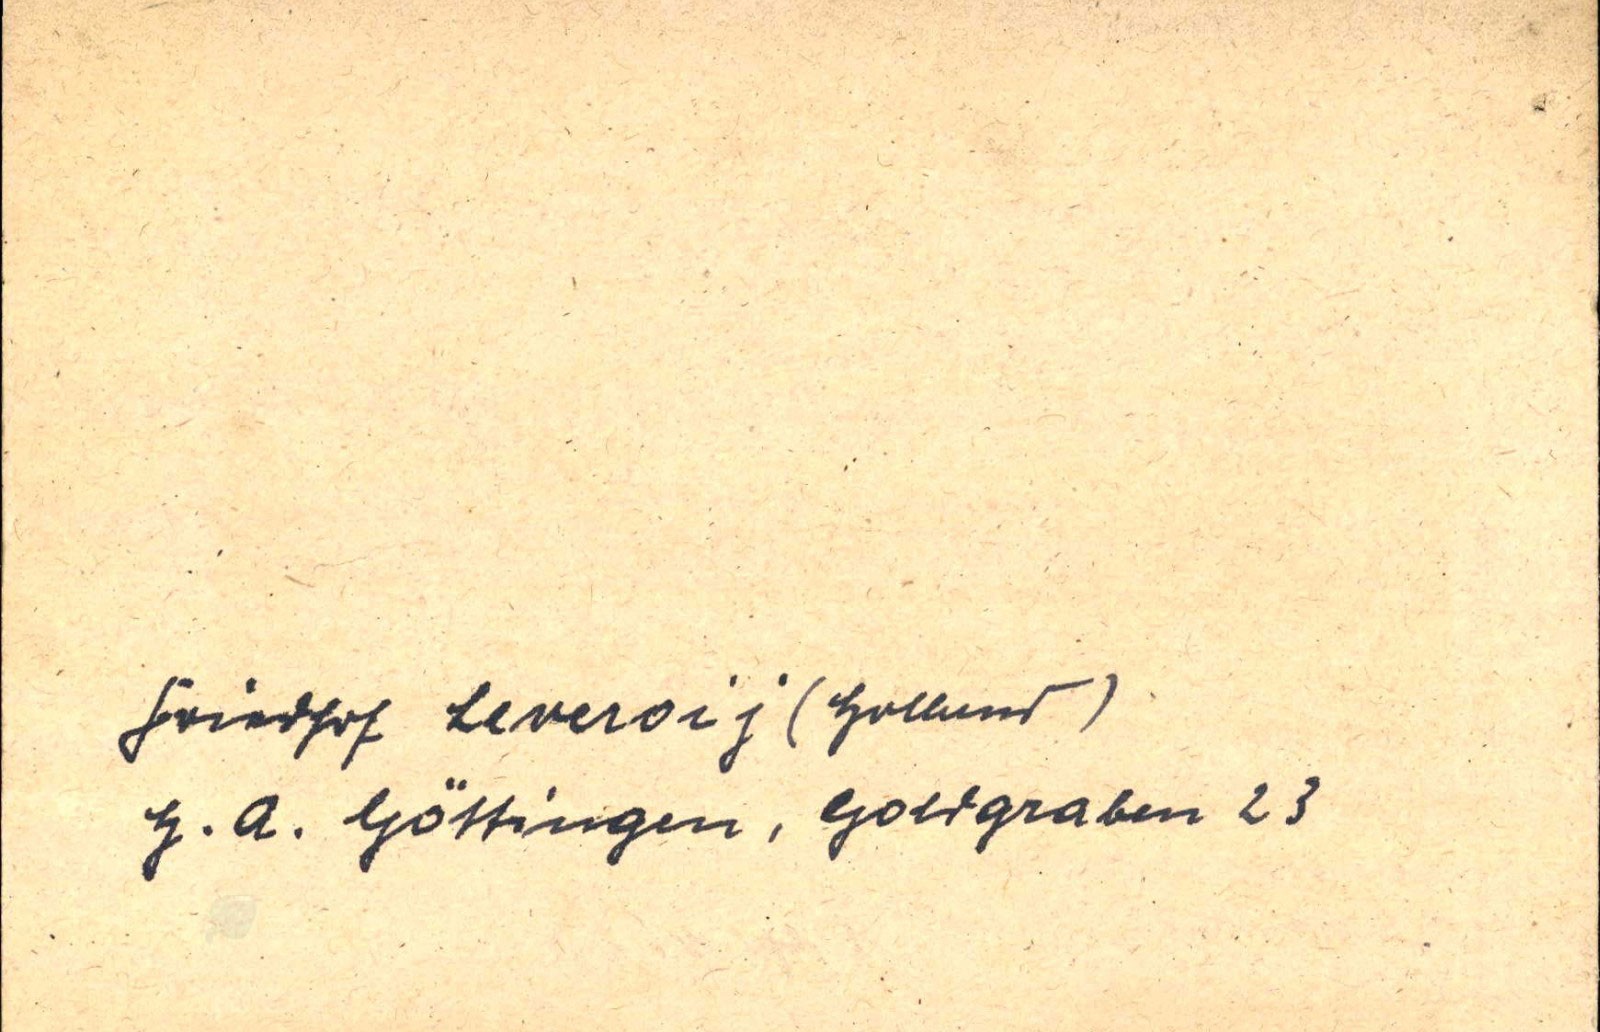 Friedhof Leveroij (Holland)
H. A. Göttingen, Goldgraben 23